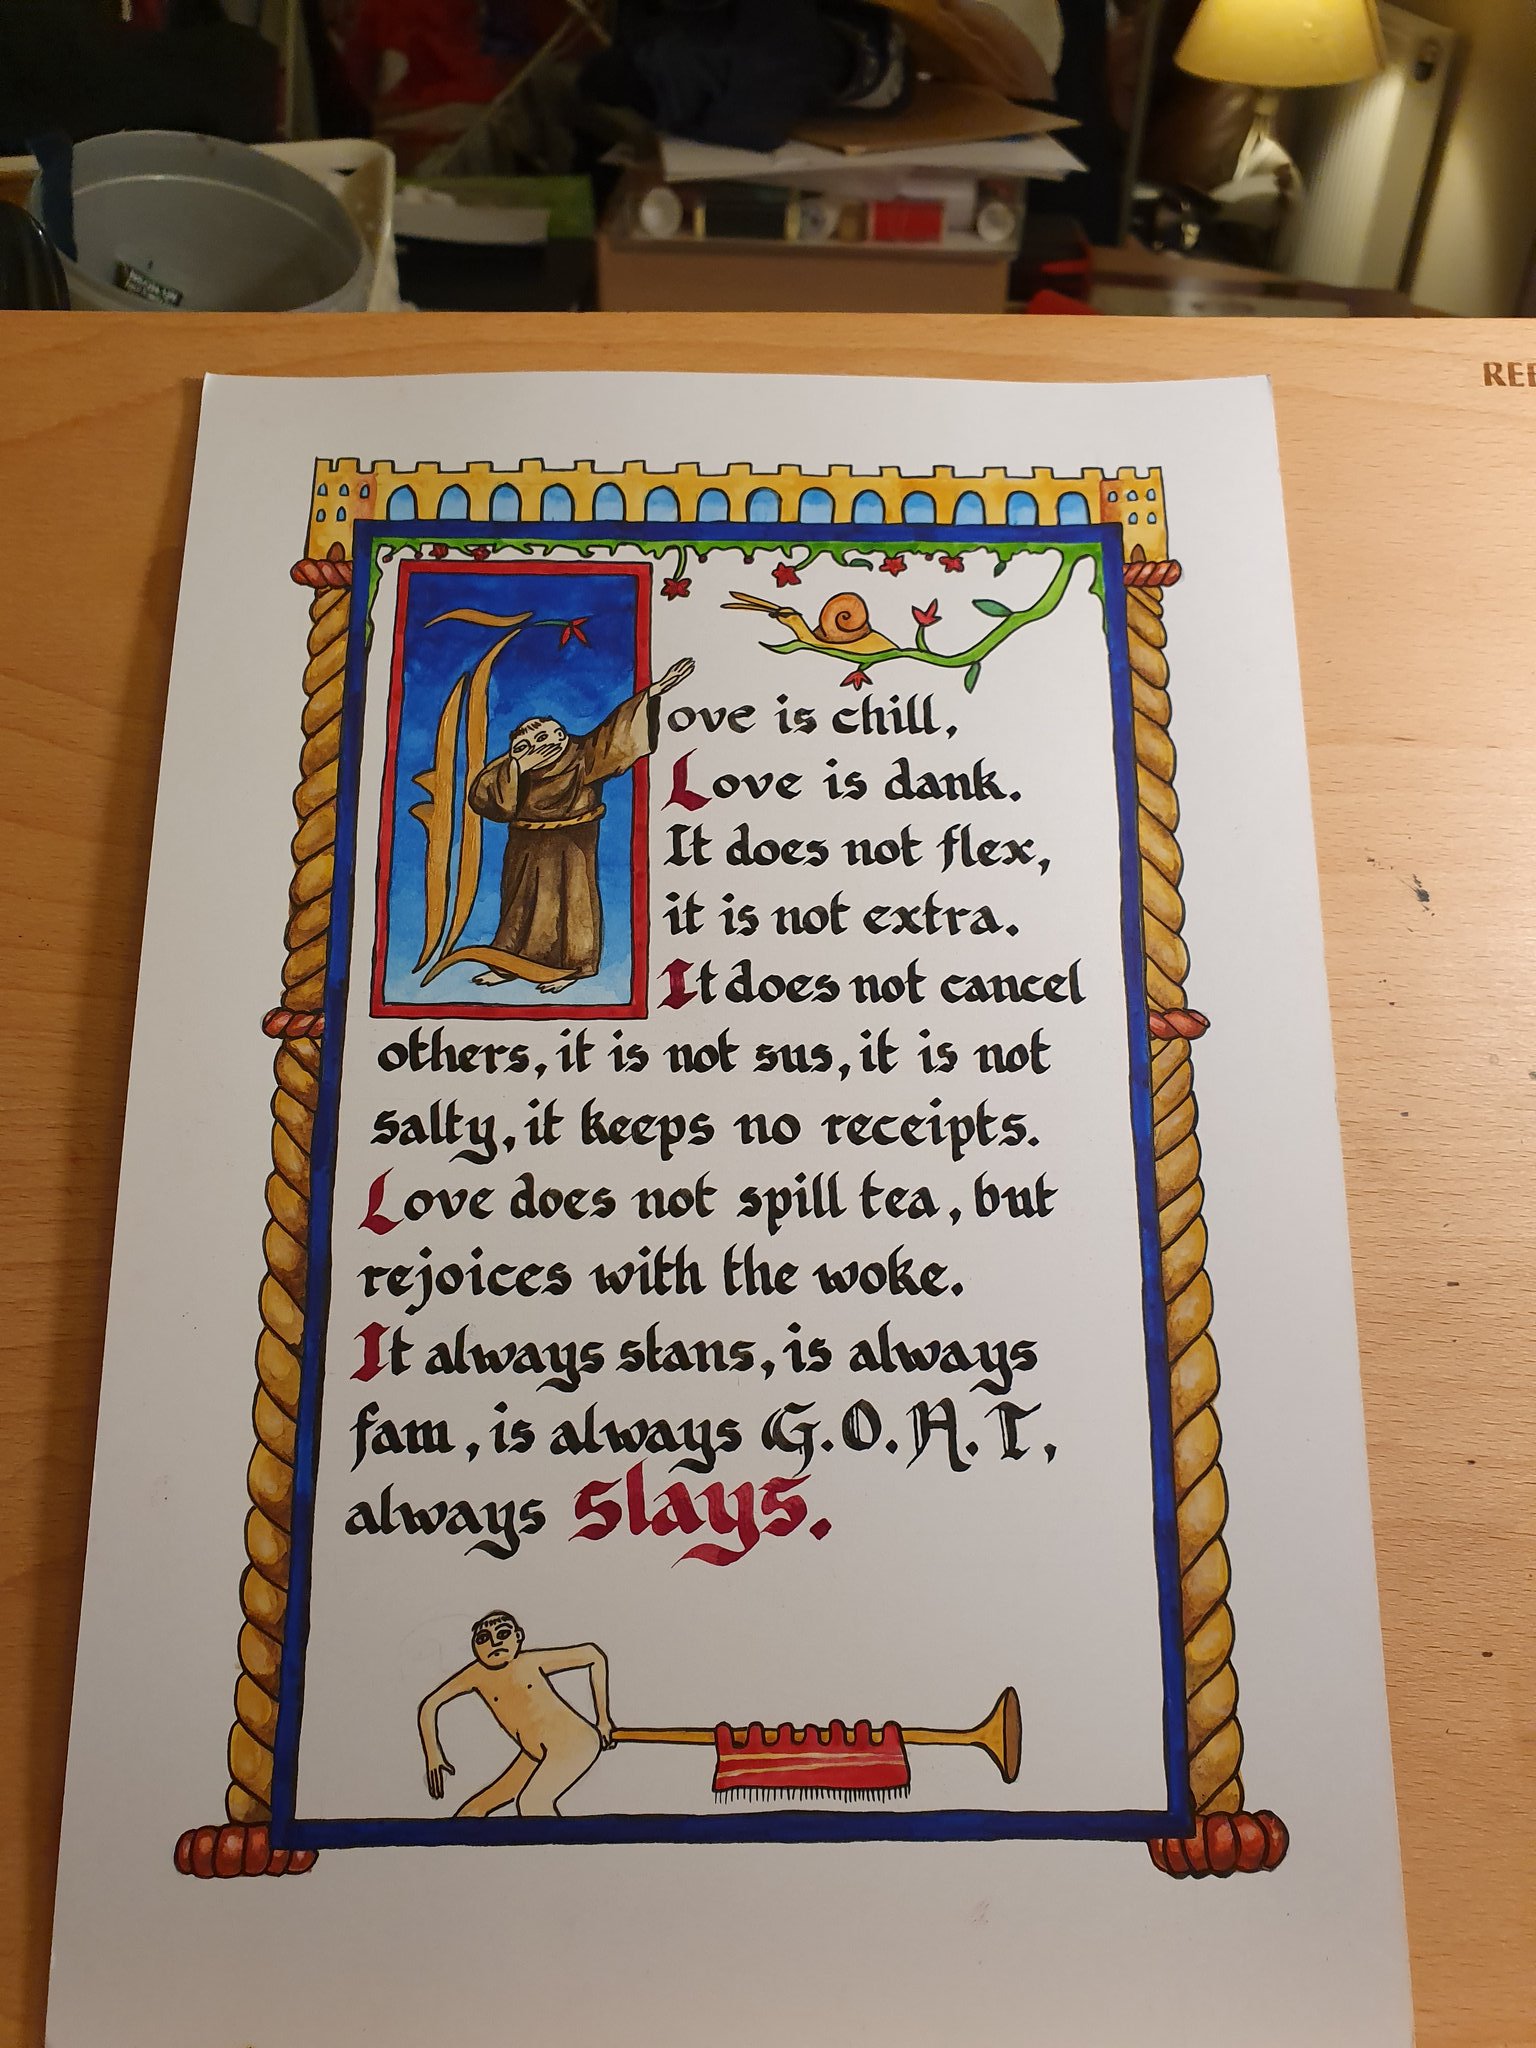 Love is chill,
Love is dank.
It does not flex,
it is not extra.
It does not cancel
others, it is not sus, it is not
salty, it keeps no receipts.
Love does not spill tea, but
rejoices with the woke.
It always stans, is always
fam, is always G.O.A.T,
always slays.